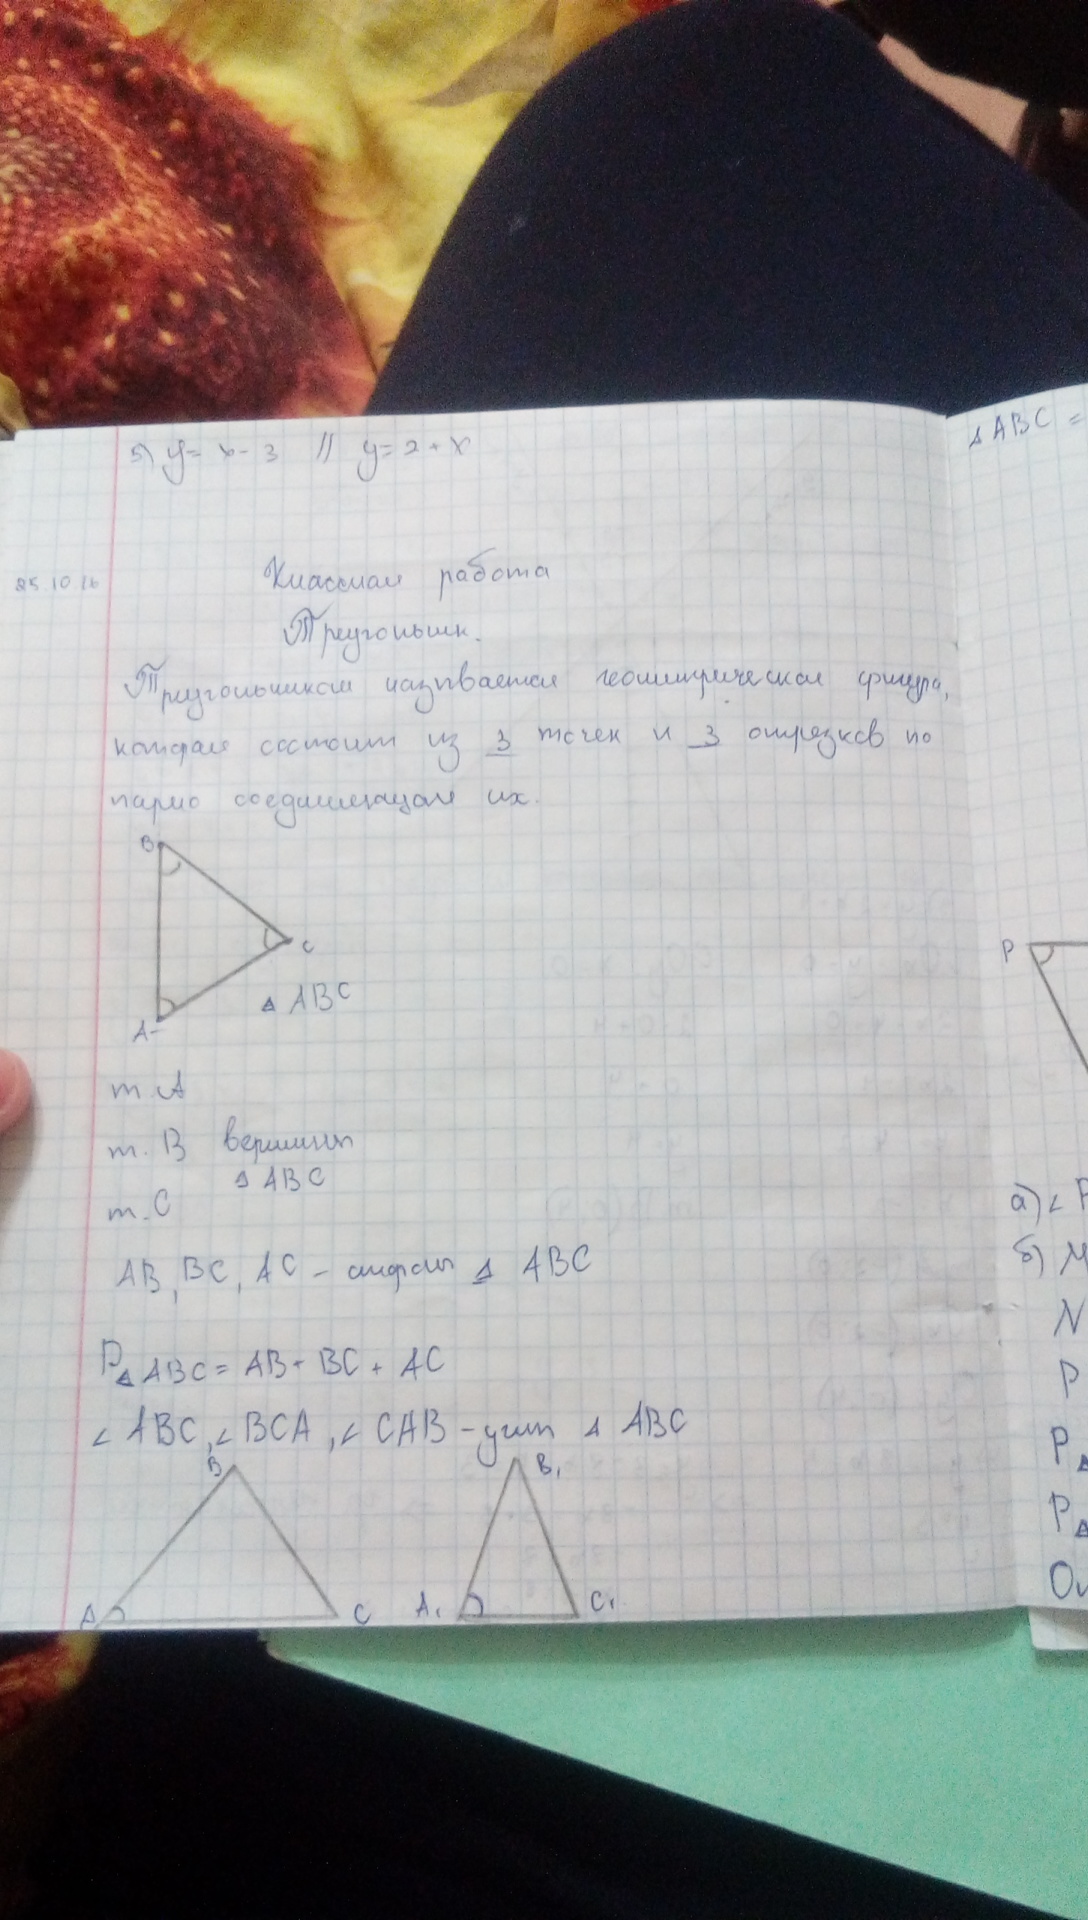 5) y = x - 3 // y = 2 + x
25.10.16
Классная работа
Треугольник.
Треугольником называется геометрическая фигура,
которая состоит из 3 точек и 3 отрезков по
парно соединяющая их.
B
C
A
△ ABC
т A
т. B вершины
△ ABC
т. C
AB, BC, AC - стороны △ ABC
P△ABC = AB + BC + AC
∠ ABC, ∠ BCA, ∠ CAB - углы △ ABC
B B₁
A C A₁ C₁
△ ABC =
P
а) ∠
б)
N
P
P△
P△